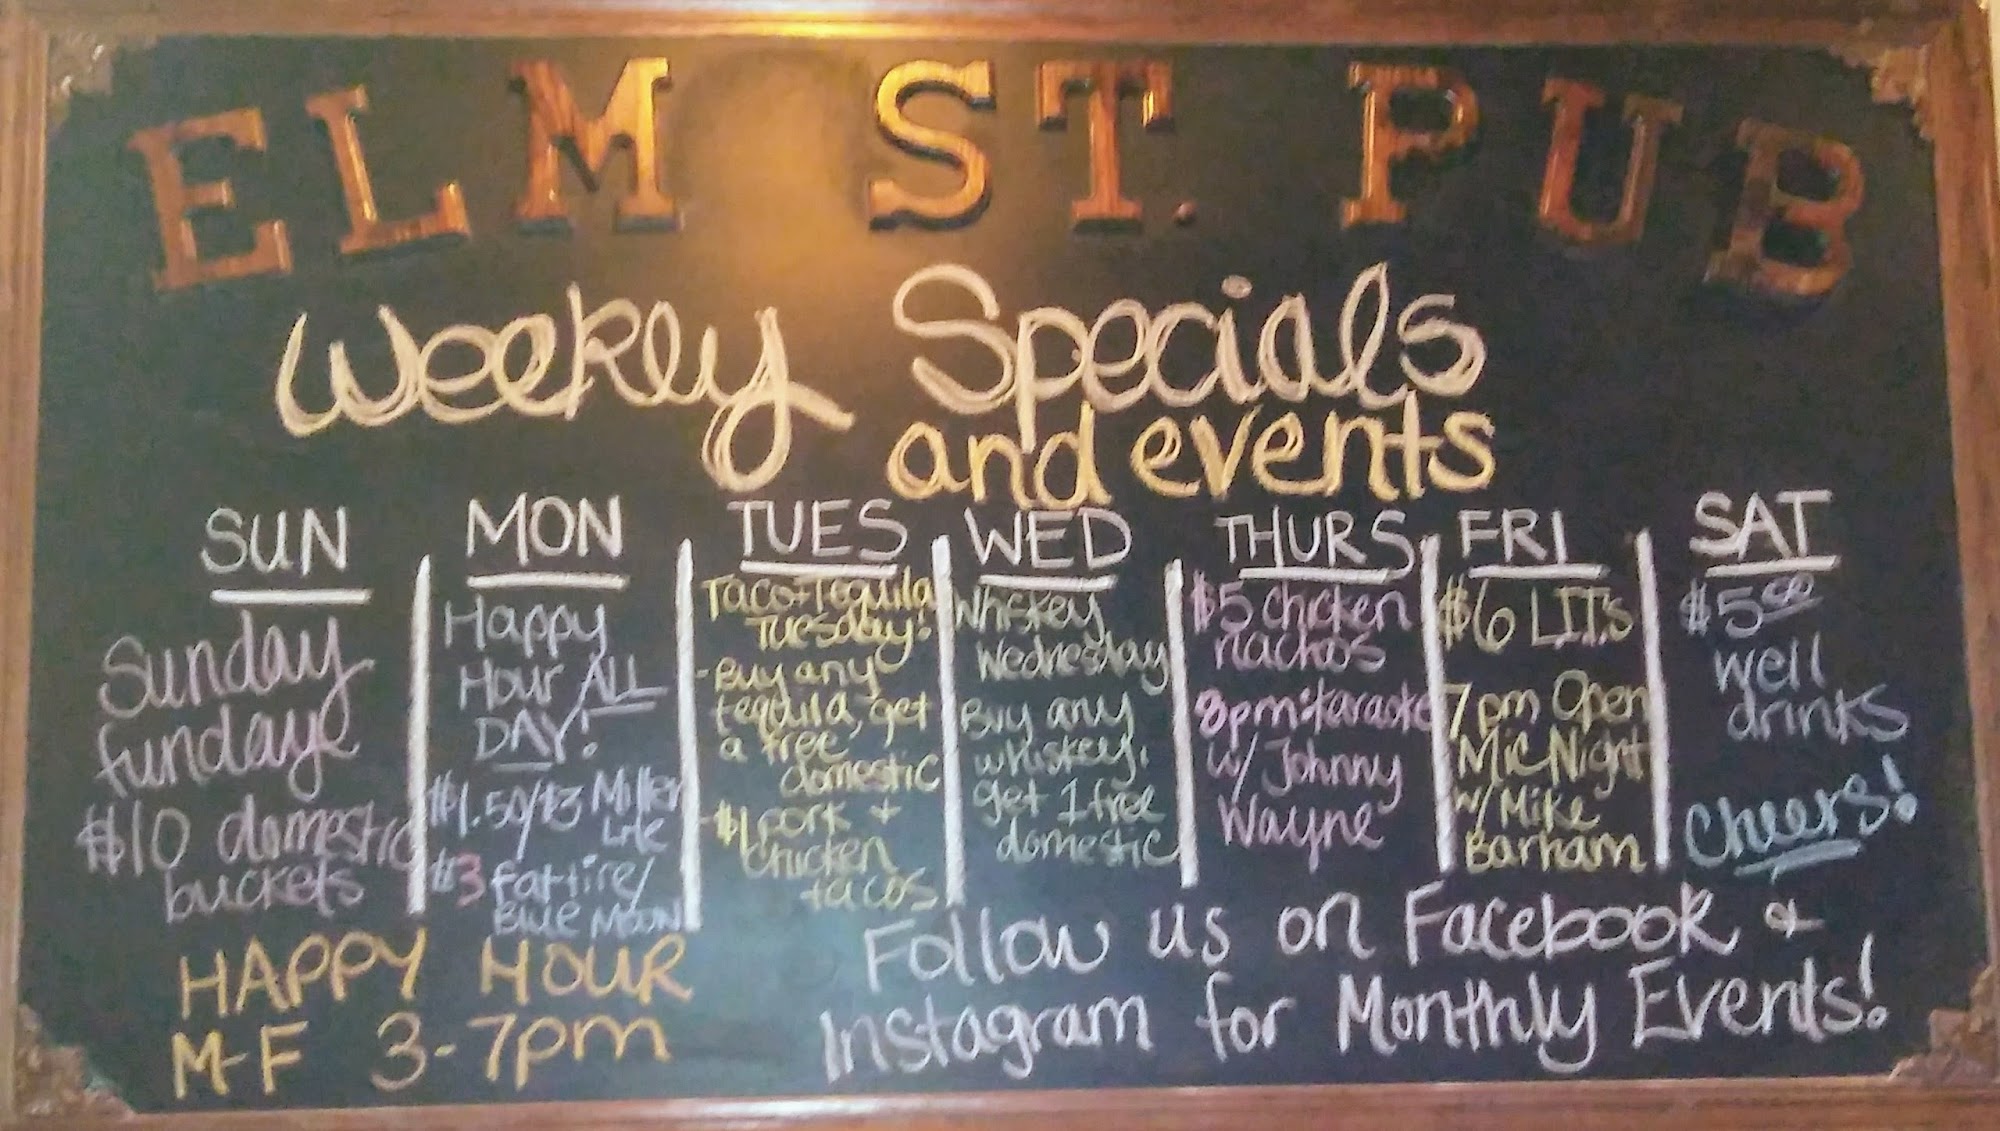 ELM ST. PUB
Weekly Specials
and events
SUN
Sunday
funday
$10 domestic
buckets
MON
Happy
Hour ALL
DAY!
$1.50/$3 Miller
Lite
$3 fat tire/
BLUE MOON
TUES
Taco+Tequila
Tuesday!
-Buy any
tequila, get
a free
domestic
-$1 pork +
chicken
tacos
WED
Whiskey
Wednesday
Buy any
whiskey,
get 1 free
domestic
THURS
$5 chicken
nachos
8pm: karaoke
w/ Johnny
Wayne
FRI
$6 L.I.T.'s
7pm Open
Mic Night
w/ Mike
Barham
SAT
$5.00
well
drinks
Cheers!
HAPPY HOUR
M-F 3-7pm
Follow us on Facebook +
Instagram for Monthly Events!